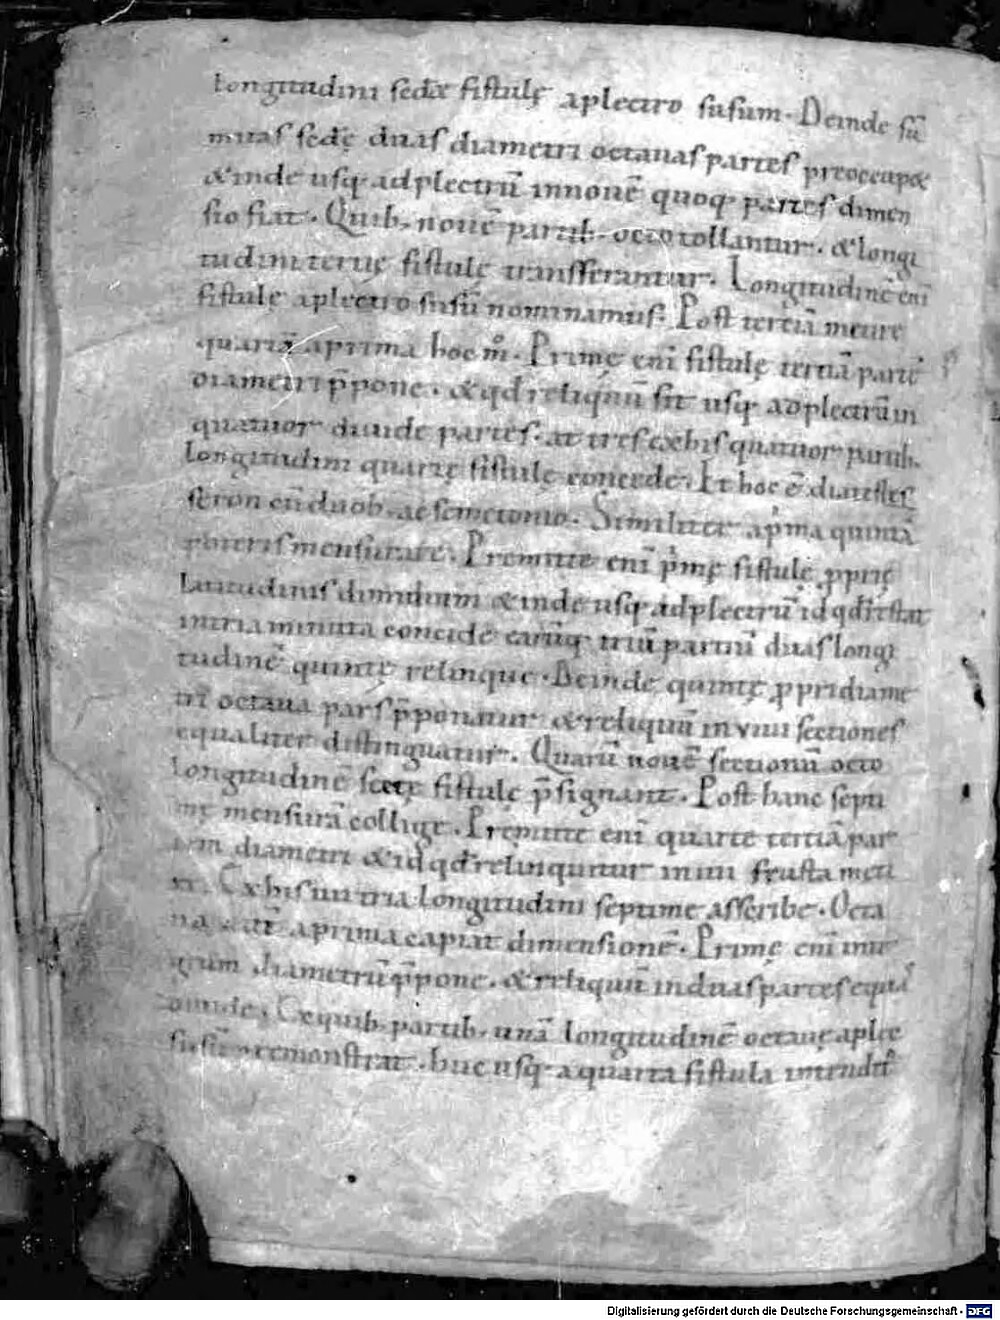 longitudini secdæ fistulę a plectro susum. Deinde sū
mitas secdę duas diametri octauas partes preoccupet
& inde usq; ad plectrū in nouē quoq; partes dimen
sio fiat. Quib; nouē partib; octo tollantur. & longi
tudini tertię fistulę transferantur. Longitudinē eni
fistulę a plectro susū nominamus. Post tertiā metire
quartā a prima hoc m°. Primę eni fistulę tertiā partē
diametri p̄pone. & qd reliquū sit usq; ad plectrū in
quatuor diuide partes. ac tres ex his quatuor partib;
longitudini quartę fistulę concede. Et hoc ē diatesse
seron cū duob; ac semitonio. Similiter a pͥma quintā
poteris mensurare. Premitte eni pͥmę fistulę ꝓprię
latitudinis dimidium & inde usq; ad plectrū id qd restat
in tria minuta concide earūq; triū partiū duas longi
tudinē quintę relinque. Deinde quintę ꝓprii diame
tri octaua pars p̄ponatur & reliquū in VIIII sectiones
equaliter distinguatur. Quarū nouē sectionū octo
longitudinē sextę fistulę p̄signant. Post hanc septi
mę mensurā collige. Pręmitte eni quarte tertiā par
tem diametri & id qd relinquitur in IIII frusta meti
re. Ex his IIII tria longitudini septime asscribe. Octa
na autē a prima capiat dimensionē. Primę eni inte
grum diametrū p̄pone. & reliquū in duas partes equas
comide. Ex quib; partib; unā longitudinē octauę a plec
susū premonstrat. huc usq; a quarta fistula intendit°